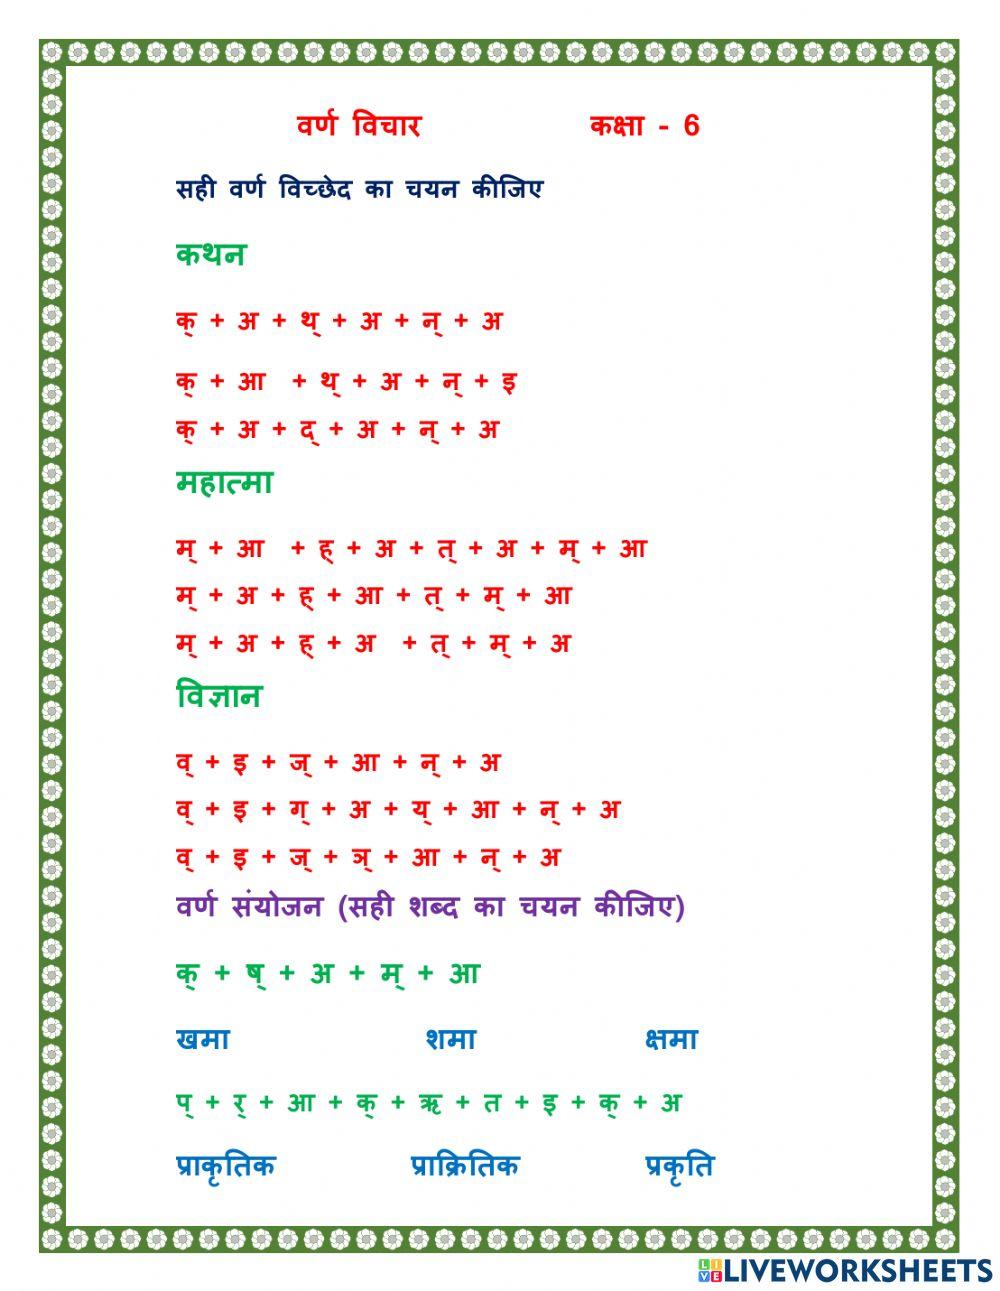 वर्ण विचार कक्षा - 6
सही वर्ण विच्छेद का चयन कीजिए
कथन
क् + अ + थ् + अ + न् + अ
क् + आ + थ् + अ + न् + इ
क् + अ + द् + अ + न् + अ
महात्मा
म् + आ + ह् + अ + त् + अ + म् + आ
म् + अ + ह् + आ + त् + म् + आ
म् + अ + ह् + अ + त् + म् + अ
विज्ञान
व् + इ + ज् + आ + न् + अ
व् + इ + ग् + अ + य् + आ + न् + अ
व् + इ + ज् + ञ् + आ + न् + अ
वर्ण संयोजन (सही शब्द का चयन कीजिए)
क् + ष् + अ + म् + आ
खमा शमा क्षमा
प् + र् + आ + क् + ऋ + त + इ + क् + अ
प्राकृतिक प्राक्रितिक प्रकृति
LIVE LIVEWORKSHEETS